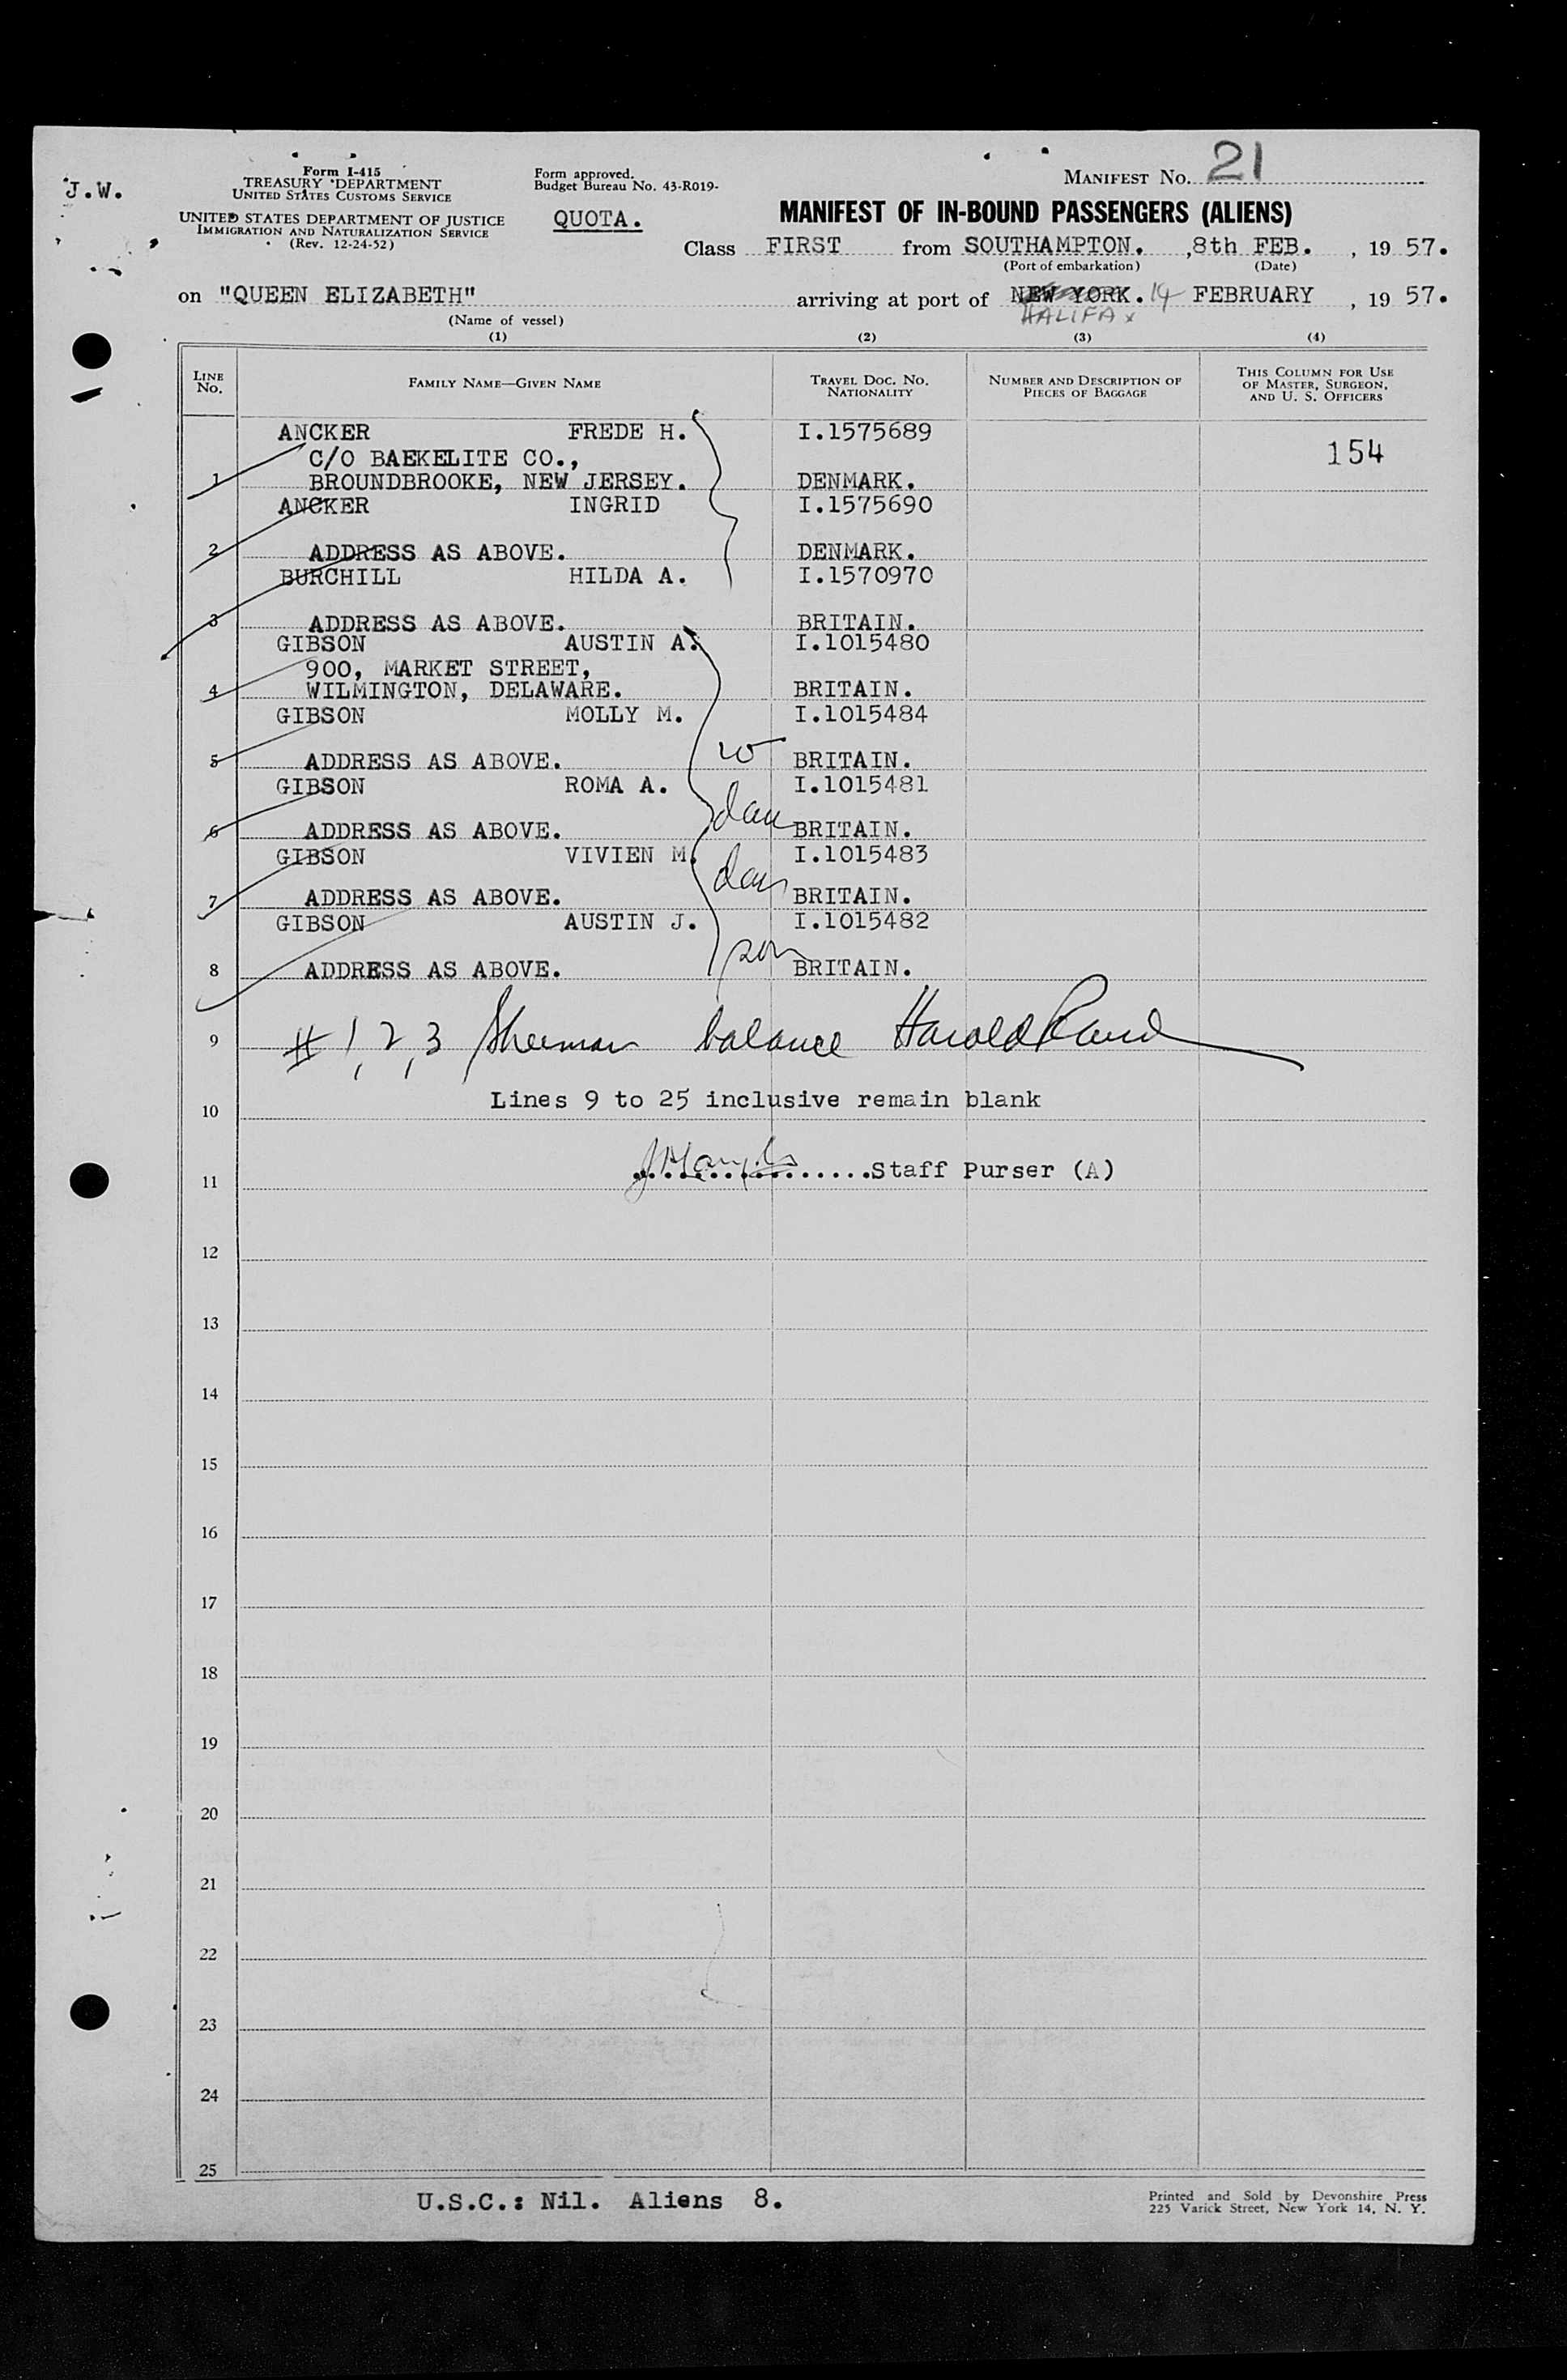 J.W.
Form I-415
TREASURY DEPARTMENT
UNITED STATES CUSTOMS SERVICE
UNITED STATES DEPARTMENT OF JUSTICE
IMMIGRATION AND NATURALIZATION SERVICE
(Rev. 12-24-52)
Form approved.
Budget Bureau No. 43-R019-
QUOTA.
MANIFEST NO. 21
MANIFEST OF IN-BOUND PASSENGERS (ALIENS)
Class FIRST from SOUTHAMPTON. , 8th FEB. , 19 57.
(Port of embarkation) (Date)
on "QUEEN ELIZABETH" arriving at port of NEW YORK. 14 FEBRUARY , 19 57.
HALIFAX
(Name of vessel)
(1) (2) (3) (4)
LINE NO. FAMILY NAME—GIVEN NAME TRAVEL DOC. NO. NATIONALITY NUMBER AND DESCRIPTION OF PIECES OF BAGGAGE THIS COLUMN FOR USE OF MASTER, SURGEON, AND U. S. OFFICERS
ANCKER FREDE H. I.1575689
C/O BAEKELITE CO., 154
1 BROUNDBROOKE, NEW JERSEY. DENMARK.
ANCKER INGRID I.1575690
2 ADDRESS AS ABOVE. DENMARK.
BURCHILL HILDA A. I.1570970
3 ADDRESS AS ABOVE. BRITAIN.
GIBSON AUSTIN A. I.1015480
900, MARKET STREET,
4 WILMINGTON, DELAWARE. BRITAIN.
GIBSON MOLLY M. I.1015484
5 ADDRESS AS ABOVE. w BRITAIN.
GIBSON ROMA A. I.1015481
6 ADDRESS AS ABOVE. dau BRITAIN.
GIBSON VIVIEN M. I.1015483
7 ADDRESS AS ABOVE. dau BRITAIN.
GIBSON AUSTIN J. I.1015482
8 ADDRESS AS ABOVE. son BRITAIN.
9 # 1, 2, 3 Sherman balance Harold
Lines 9 to 25 inclusive remain blank
10
Staff Purser (A)
11
12
13
14
15
16
17
18
19
20
21
22
23
24
25
U.S.C.: Nil. Aliens 8.
Printed and Sold by Devonshire Press
225 Varick Street, New York 14, N. Y.